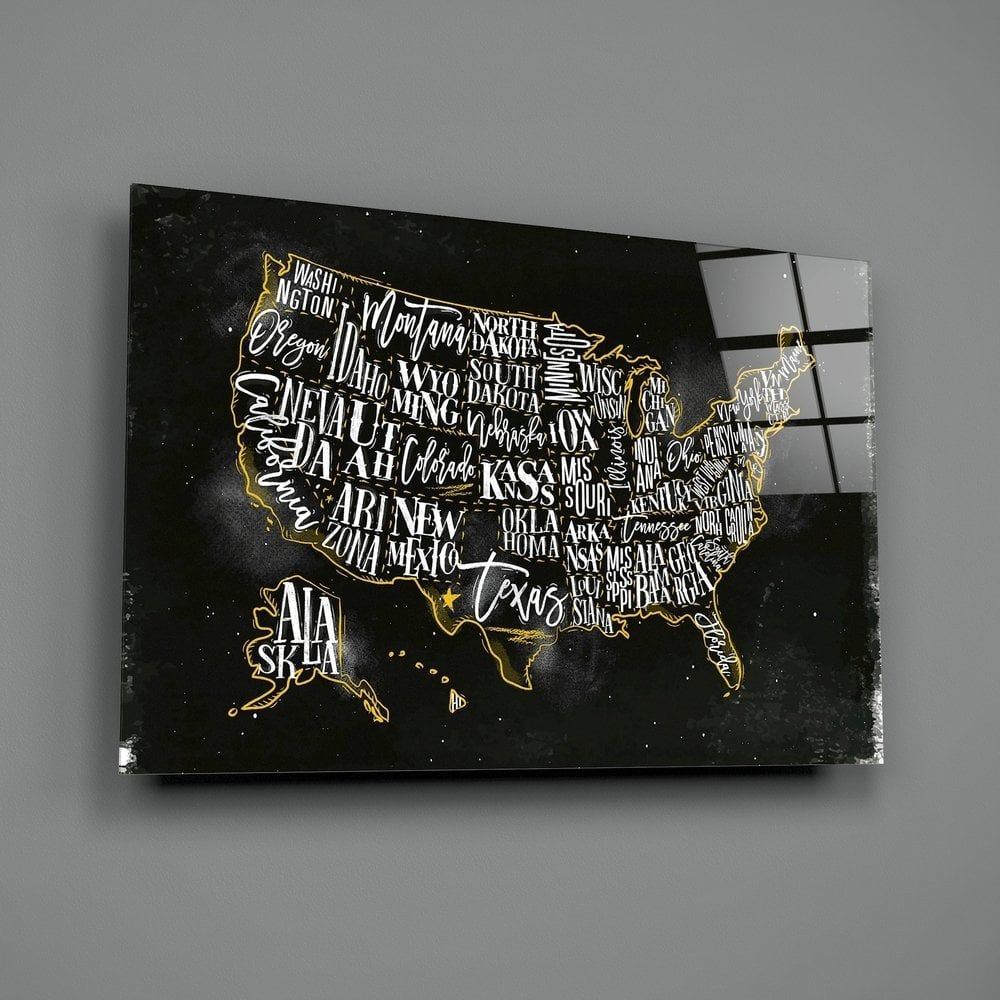 WASHI
NGTON
Oregon
California
IDAHO
NEVA
DA
Montana
WYO
MING
UT
AH
Colorado
ARI
ZONA
NEW
MEXICO
NORTH
DAKOTA
SOUTH
DAKOTA
Nebraska
KANSAS
OKLA
HOMA
Texas
IOWA
MIS
SOURI
ARKA
NSAS
LOUI
SIANA
WISC
ONSIN
Illinois
MI
CHI
GAN
INDI
ANA
Ohio
KENTUCKY
Tennessee
MIS
SIS
SIP
PI
ALA
BAM
A
GEO
RGIA
Florida
New York
Maine
VIRGINIA
NORTH
CAROLINA
ALA
SKA
HI